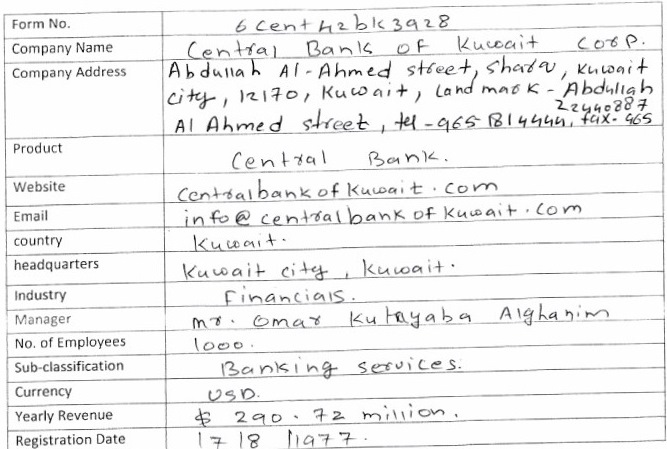 Form No. 6 cent42bk3928
Company Name Central Bank of Kuwait Corp.
Company Address Abdullah Al-Ahmed street, Sharq, Kuwait
city, 12170, Kuwait, Landmark - Abdullah
Al Ahmed street, tel -965 1814444, fax- 965
22440887
Product Central Bank.
Website Centralbankofkuwait.com
Email info@centralbankofkuwait.com
country Kuwait.
headquarters Kuwait city, Kuwait.
Industry Financials.
Manager mr. Omar Kutayaba Alghanim
No. of Employees 1000.
Sub-classification Banking services.
Currency USD.
Yearly Revenue $ 290.72 million.
Registration Date 17 18 11977.